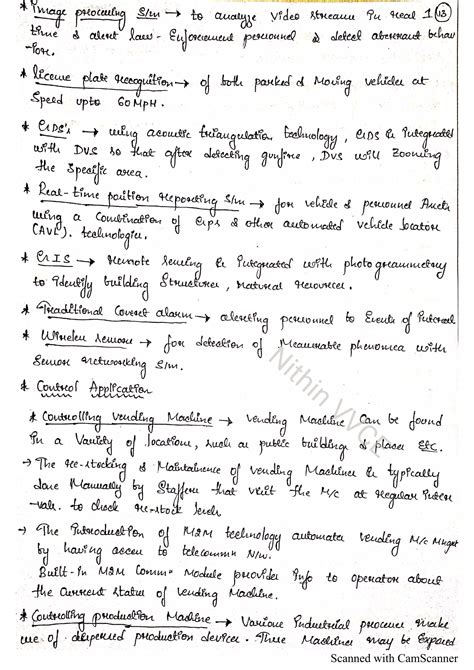 * Image processing S/m → to analyze video streams in real 1 (13)
time & alert law-Enforcement personnel & detect aberrant behav
-ior.
* license plate Recognition → of both parked & Moving vehicles at
Speed upto 60MPH.
* GDS's → using acoustic triangulation technology, GDS is Integrated
with DVS so that after detecting gunfire, DVS will Zooming
the Specific area.
* Real-time position Reporting S/m → for vehicles & personnel
using a Combination of Gps & other automated vehicle locator
(AVL). technologies.
* GIS → Remote sensing is Integrated with photogrammetry
to identify building Structures, natural resources.
* Traditional Covert alarm → alerting personnel to Events of Interest
* Wireless sensors → for detection of Measurable phenomea with
Sensor networking S/m.
* Control Application
* Controlling Vending Machine → Vending Machine Can be found
in a Variety of locations, such as public buildings & places Etc.
→ The re-stocking & Maintainence of vending Machines is typically
done Manually by Staffers that visit the M/c at Regular Inter
-vals. to check re-stock levels
→ The Introduction of M2M technology automates vending M/c
by having access to telecommn N/w.
Built-in M2M Commn Module provides Info to operator about
the current status of Vending Machine.
* Controlling production Machine → Various Industrial process make
use of dispersed production devices. These Machines may be Exposed
Nithin VVCE
Scanned with CamScanner